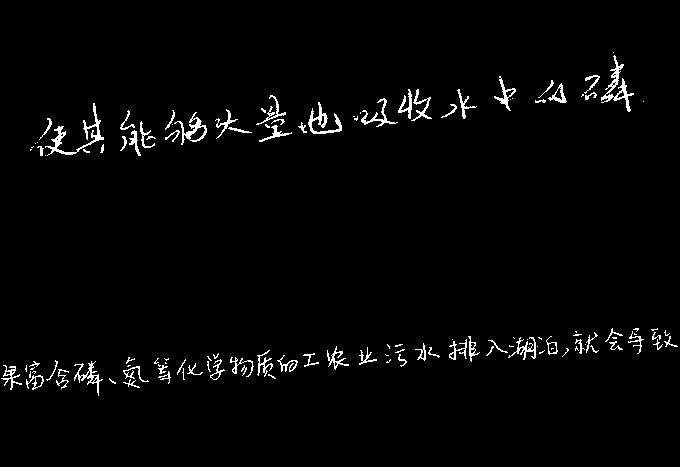 使其能够大量地吸收水中的磷
果富含磷、氮等化学物质的工农业污水排入湖泊,就会导致